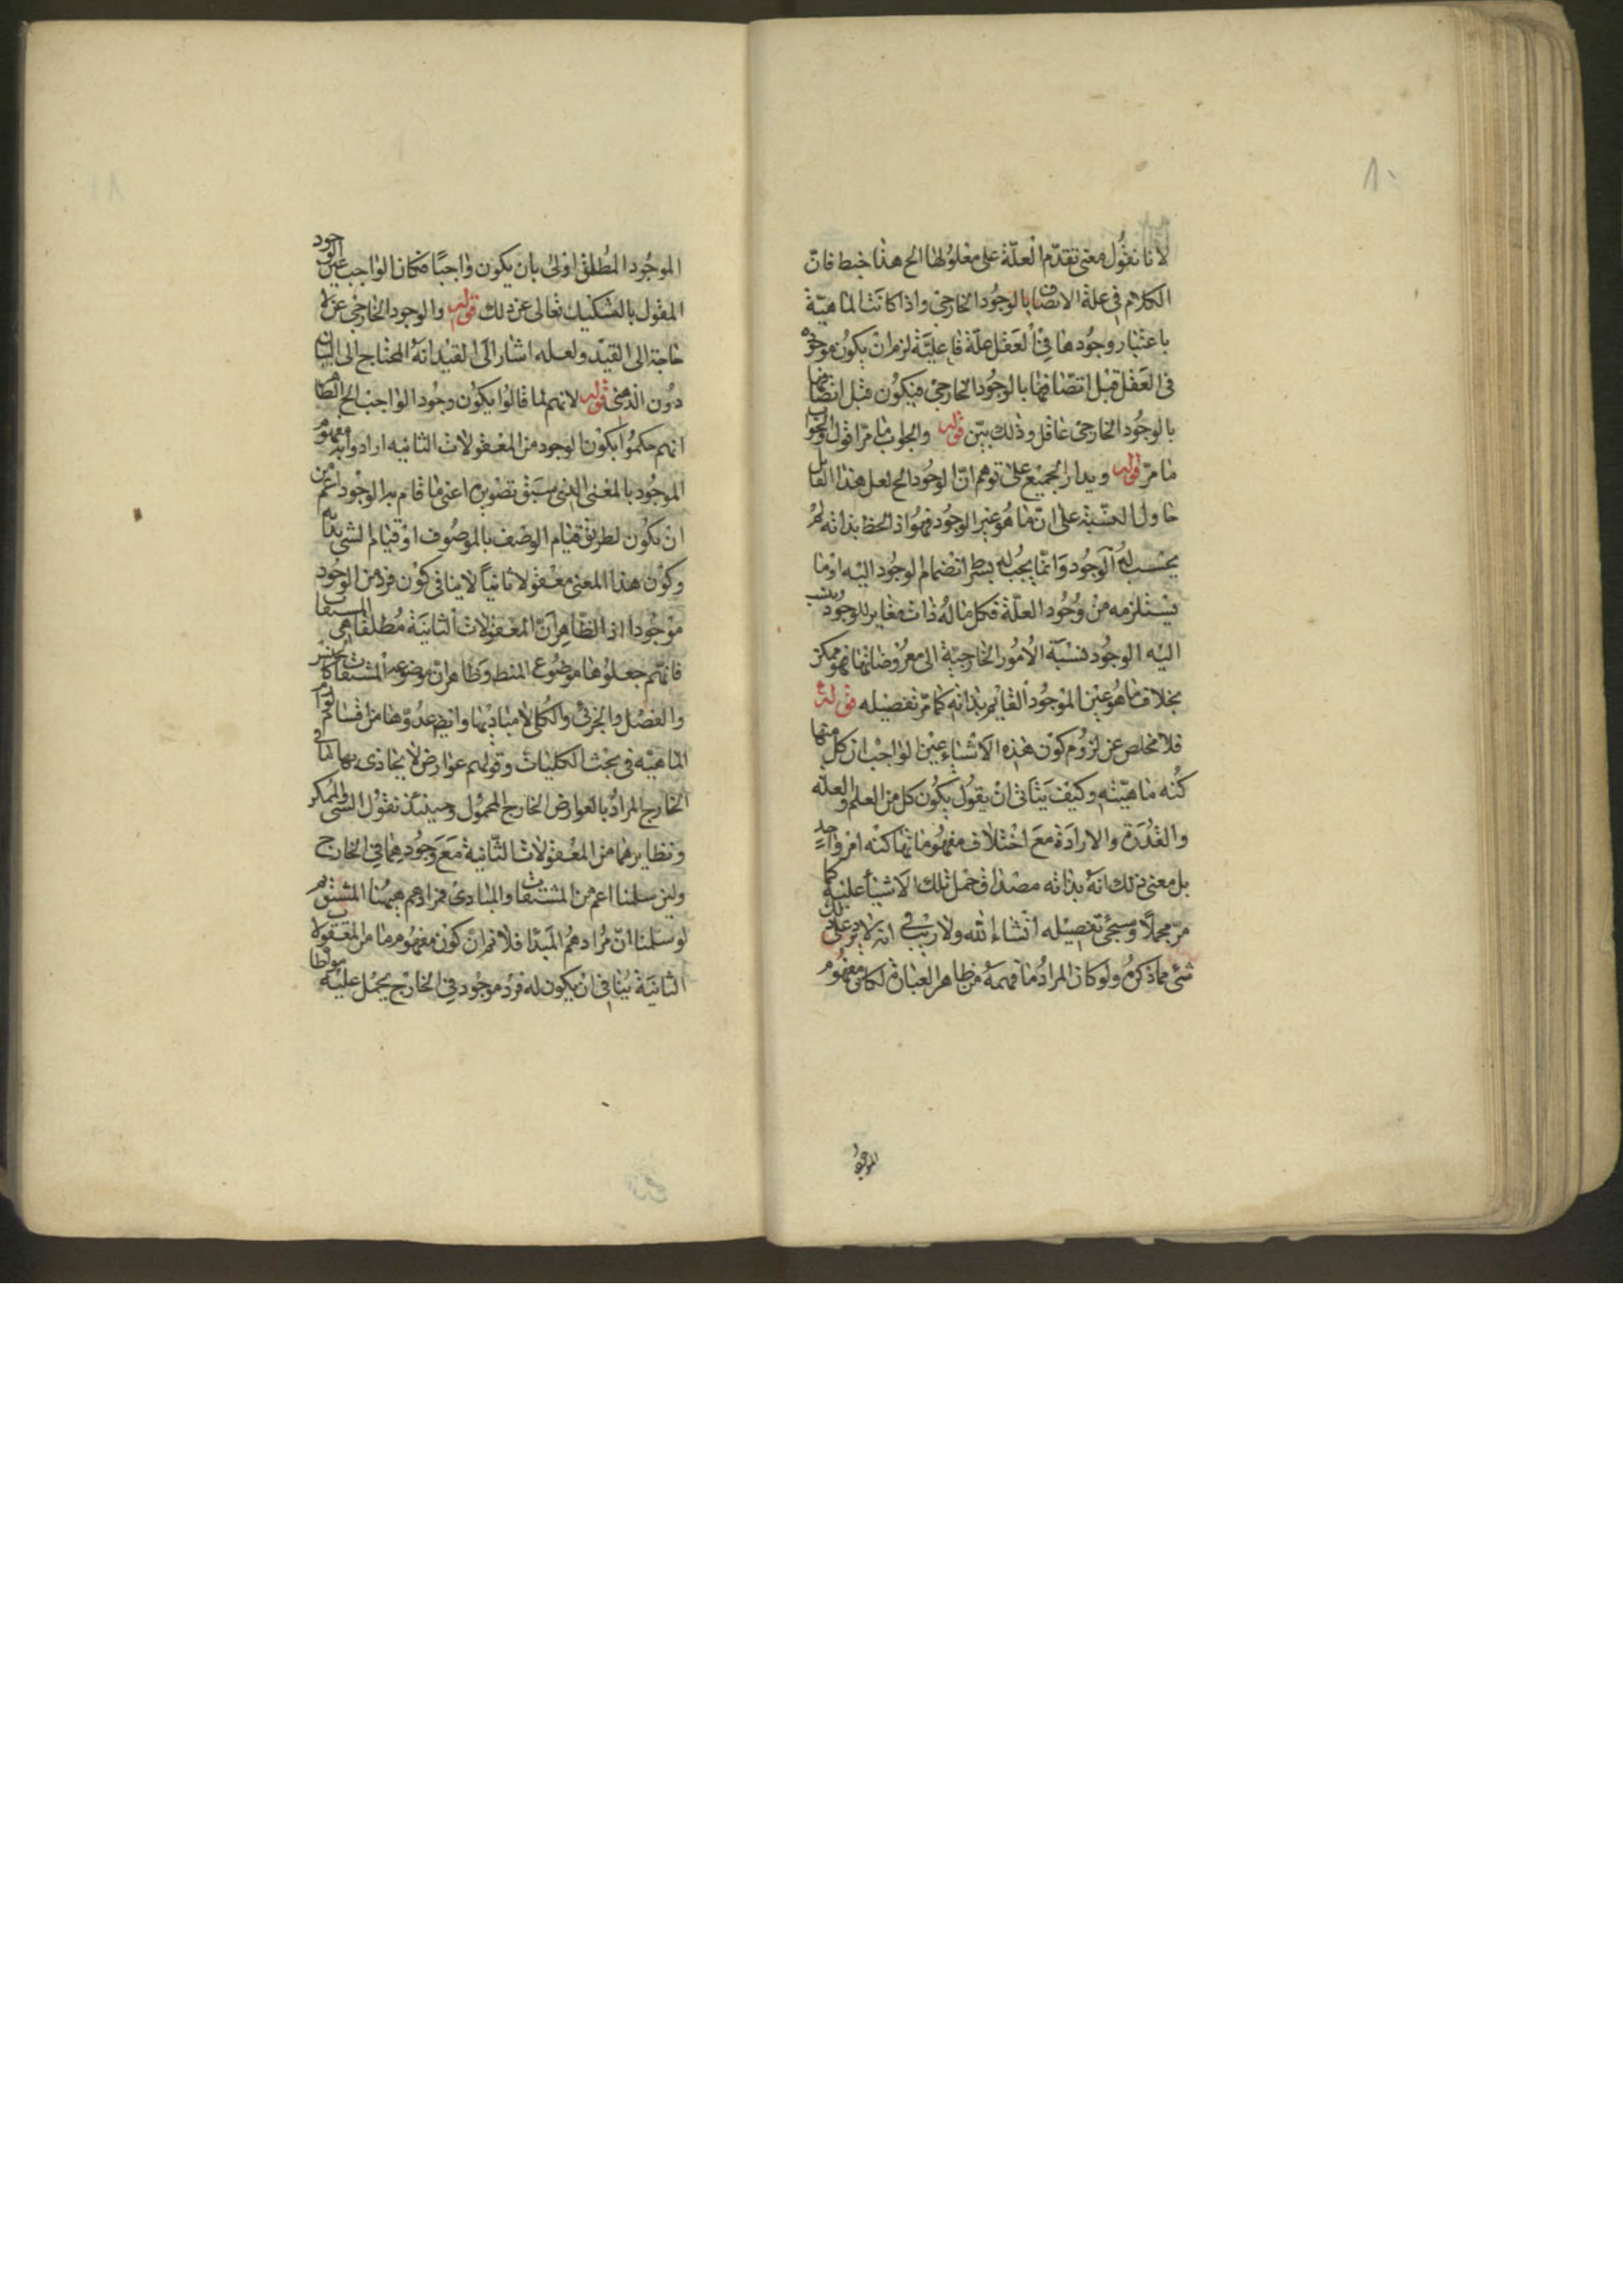 ٨٠
لانا نقول معنى تقدم العلة على معلولها الخ هذا خبط فان
الكلام في علة الاتصاف بالوجود الخارجي واذا كانت الماهية
باعتبار وجودها في العقل علة فاعلية لزم ان يكون موجودة
في العقل قبل اتصافها بالوجود الخارجي فيكون قبل اتصافها
بالوجود الخارجي عاقل وذلك بين قوله والجواب ما مر اقول والجواب
ما مر قوله ويدار الجميع على توهم ان الوجود الخ لعل هذا القايل
حاول التنبيه على ان ما هو غير الوجود فهو اذا لحظ بذاته لم
يحسب له الوجود وانما يجب له بشرط انضمام الوجود اليه او ما
يستلزمه من وجود العلة فكل ما له ذات مغاير للوجود وينسب
اليه الوجود نسبة الامور الخارجية الى معروضاتها فهو ممكن
بخلاف ما هو عين الموجود القايم بذاته كما مر تفصيله قوله
فلا مخلص عن لزوم كون هذه الاشياء عين الواجب ان كل منها
كنه ماهيته وكيف يتأتى ان يقول يكون كل من العلم والعلة
والقدرة والارادة مع اختلاف مفهوماتها كنه امر واحد
بل معنى ذلك انه بذاته مصداق حمل تلك الاشياء عليه كما
مر مجملا وسيجئ تفصيله انشاء الله ولا ريب في انه لا يرد على ذلك
شئ مما ذكره ولو كان المراد ما فهمه من ظاهر العبارة لكان مفهوم
الموجود
٨١
الموجود المطلق اولى بان يكون واجبا فكان الواجب عين الوجود
المقول بالتشكيك تعالى عن ذلك قوله والوجود الخارجي عن لا
حاجة الى القيد ولعله اشار الى القيد انه المحتاج الى البيان
دون الذهني قوله لانهم لما قالوا يكون وجود الواجب الخ الظاهر
انهم حكموا بكون الوجود من المعقولات الثانيه ارادوا به مفهوم
الموجود بالمعنى الذي سبق تصويره اعنى ما قام به الوجود اعم من
ان يكون لطريق قيام الوصف بالموصوف او قيام الشئ بذاته
وكون هذا المعنى معقولا ثانيا لا ينافي كون فرد من الوجود
موجودا اذ الظاهر ان المعقولات الثانية مطلقا هي المشتقات
فانهم جعلوها موضوع المنطق وظاهر ان موضوعه المشتقات كالجنس
والفصل والجزئي والكلي لا مباديها وايضا عدوها من اقسام لوازم
الماهيه في بحث الكليات وقولهم عوارض لا يحاذى بها لما في
الخارج المراد بالعوارض الخارج المحمول وحينئذ نقول الشئ والممكن
ونظايرهما من المعقولات الثانية مع وجودهما في الخارج
ولئن سلمنا اعم من المشتقات والمبادى فمرادهم ههنا المشتق ثم
لو سلمنا ان مرادهم المبدا فلا نم ان كون مفهوم ما من المعقولات
الثانية ينافي ان يكون له فرد موجود في الخارج يحمل عليه مواطاة